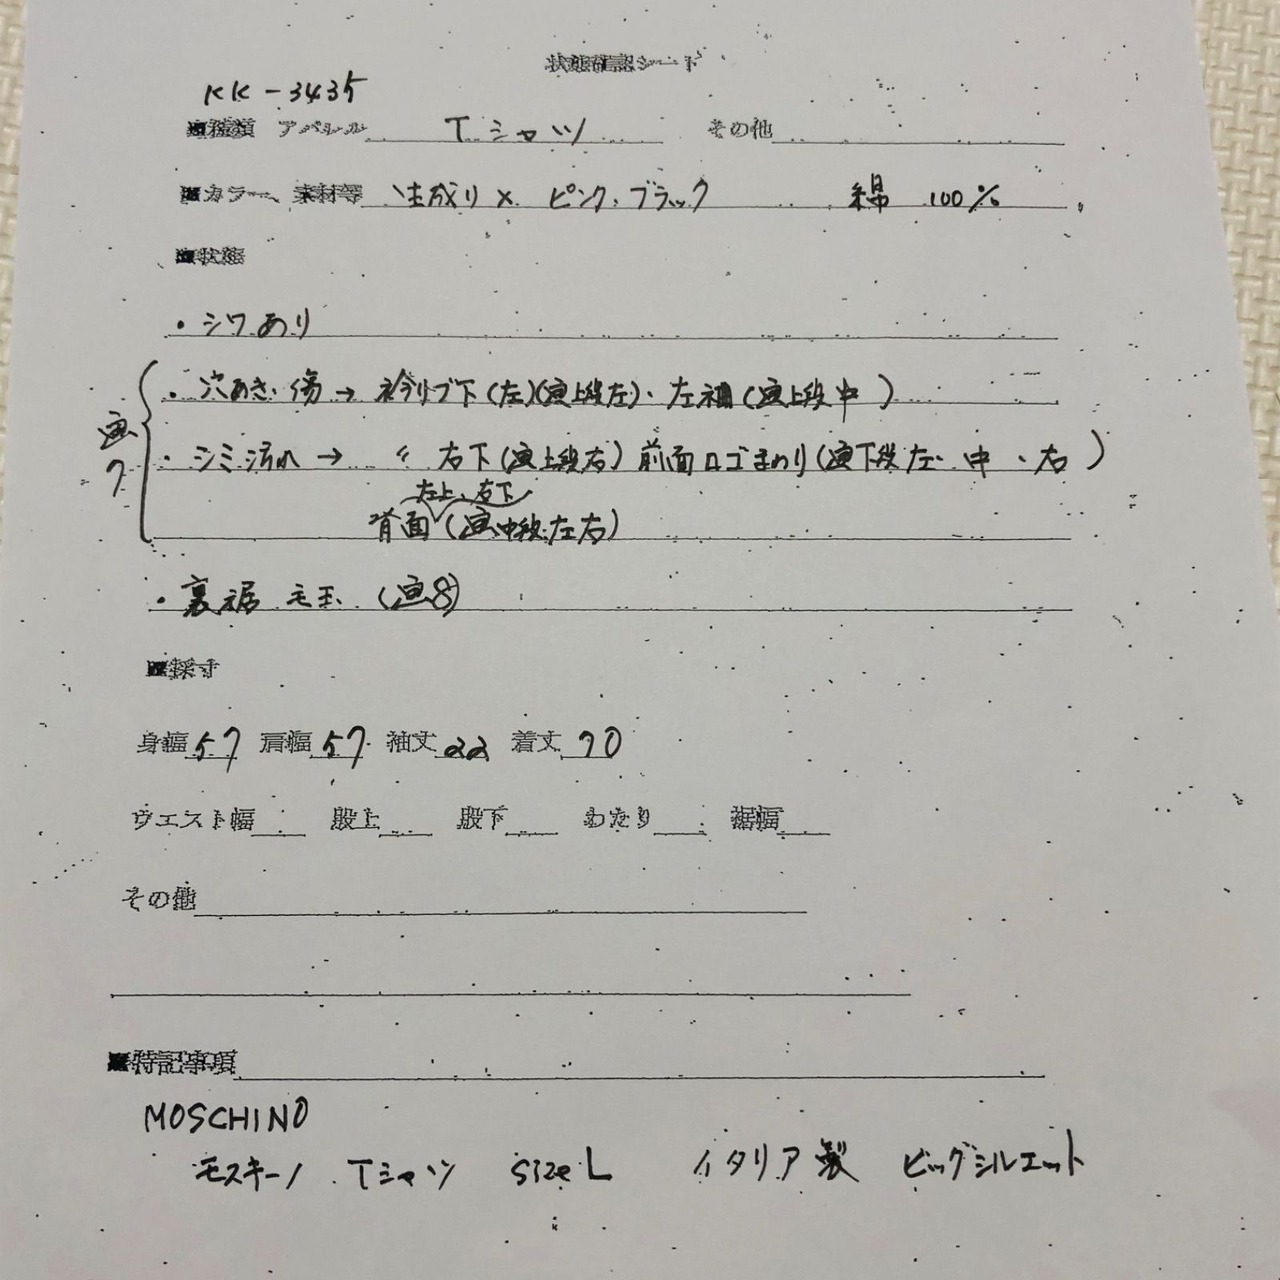 状態確認シート
KK-3435
■種類 アパレル Tシャツ その他
■カラー、素材等 生成り× ピンク、ブラック 綿 100%
■状態
・シワあり
・穴あき・傷→ 衿リブ下(左)(画上段左)・左袖(画上段中)
画7
・シミ汚れ→ 〃 右下(画上段右)前面ロゴまわり(画下段左・中・右)
左上、右下
背面(画中段・左右)
・裏裾 毛玉 (画8)
■採寸
身幅57 肩幅57 袖丈22 着丈70
ウエスト幅 股上 股下 わたり 裾幅
その他
■特記事項
MOSCHINO
モスキーノ Tシャツ size L イタリア製 ビッグシルエット